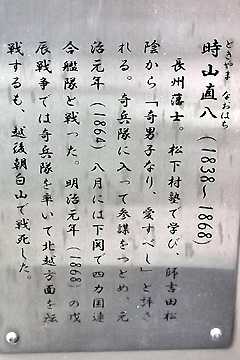 ときやま なおはち
時山直八 (1838〜1868)
長州藩士。松下村塾で学び、師吉田松
陰から「奇男子なり、愛すべし」と評さ
れる。奇兵隊に入って参謀をつとめ、元
治元年(1864)八月には下関で四カ国連
合艦隊と戦った。明治元年(1868)の戊
辰戦争では奇兵隊を率いて北越方面を転
戦するも、越後朝日山で戦死した。